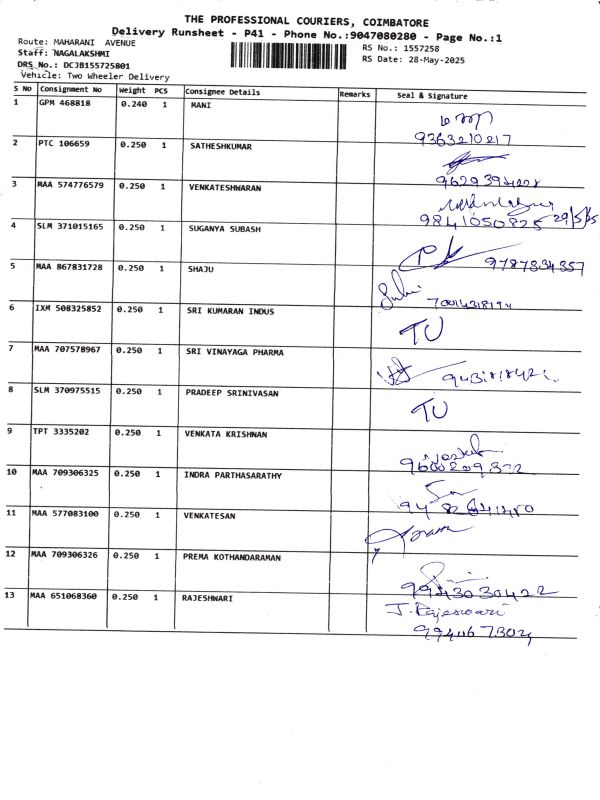 THE PROFESSIONAL COURIERS, COIMBATORE
Delivery Runsheet - P41 - Phone No.:9047080280 - Page No.:1
Route: MAHARANI AVENUE
Staff: NAGALAKSHMI
DRS No.: DCJB155725801
Vehicle: Two Wheeler Delivery
RS No.: 1557258
RS Date: 28-May-2025
S No Consignment No Weight PCS Consignee Details Remarks Seal & Signature
1 GPM 468818 0.240 1 MANI
9363210217
2 PTC 106659 0.250 1 SATHESHKUMAR
3 MAA 574776579 0.250 1 VENKATESHWARAN
9841050825 29/5/25
4 SLM 371015165 0.250 1 SUGANYA SUBASH
9787334357
5 MAA 867831728 0.250 1 SHAJU
6 IXM 508325852 0.250 1 SRI KUMARAN INDUS
TU
7 MAA 707578967 0.250 1 SRI VINAYAGA PHARMA
8 SLM 370975515 0.250 1 PRADEEP SRINIVASAN
TU
9 TPT 3335202 0.250 1 VENKATA KRISHNAN
10 MAA 709306325 0.250 1 INDRA PARTHASARATHY
11 MAA 577083100 0.250 1 VENKATESAN
12 MAA 709306326 0.250 1 PREMA KOTHANDARAMAN
9943030422
13 MAA 651068360 0.250 1 RAJESHWARI
J. Rajeswari